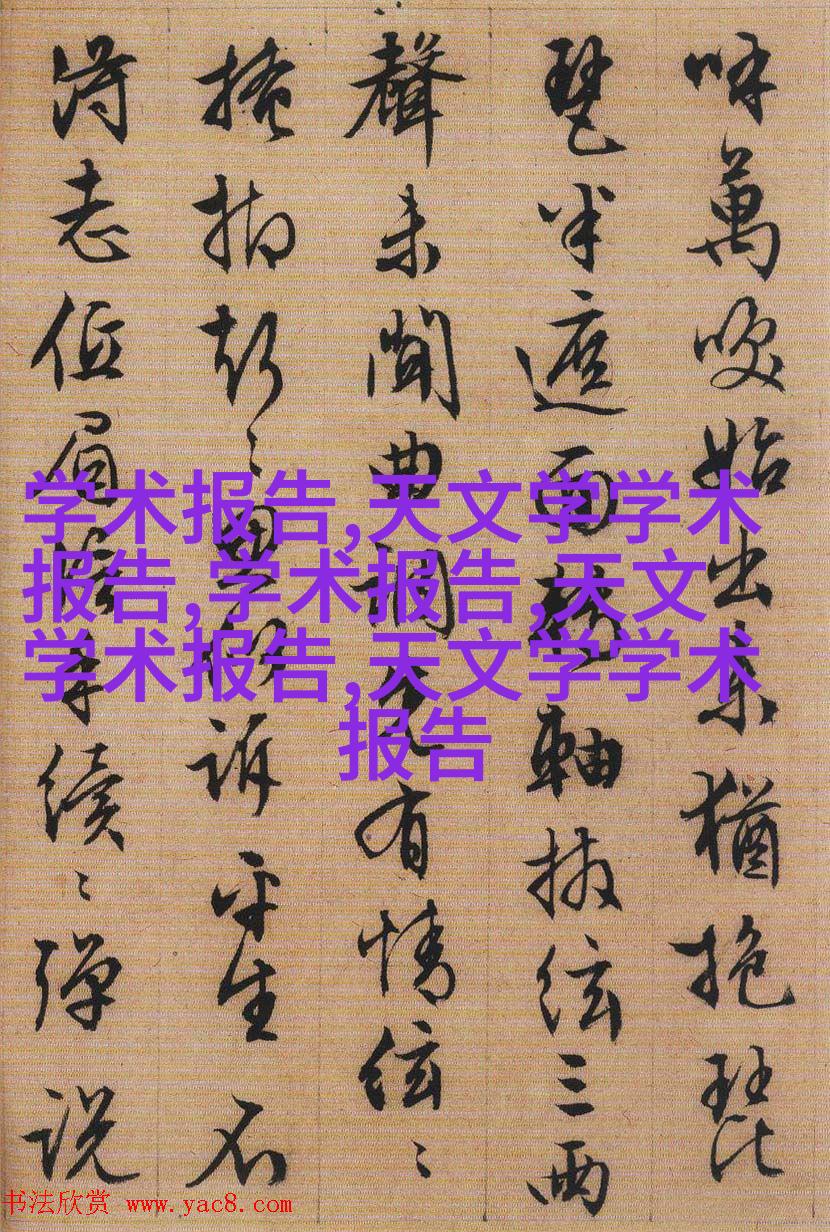 呼萬唤始出来猶抱琵
琶半遮面轉軸撥絃三两
聲未聞曲調先有情絃〻
掩抑〻思似訴平生不
得志低眉信手續〻彈説
学术报告,天文学学术
报告,学术报告,天文
学术报告,天文学学术
报告
书法欣赏 www.yac8.com